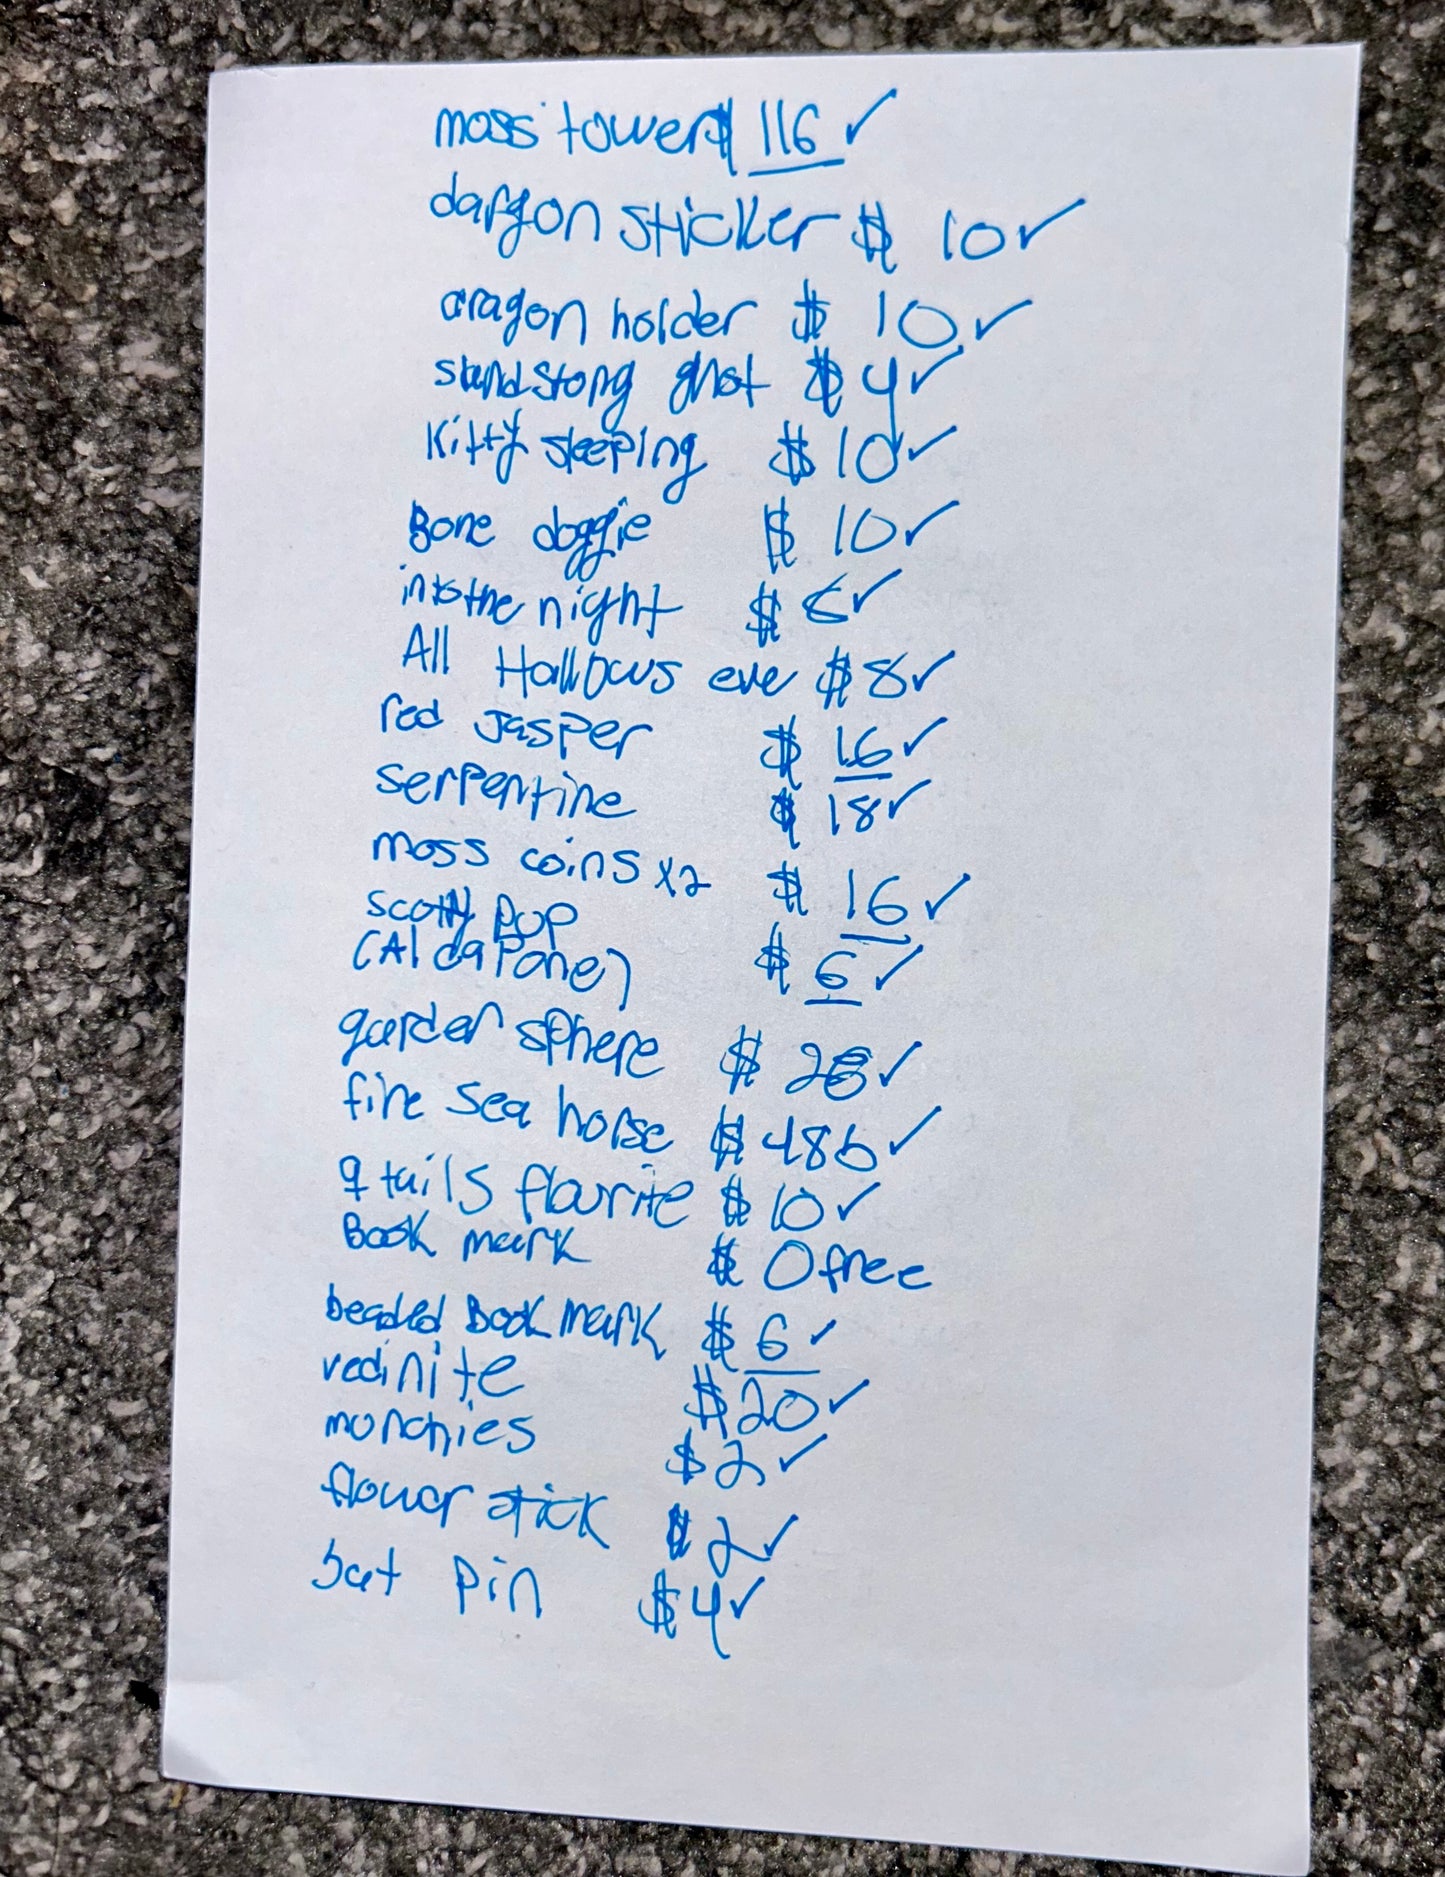 moss tower $ 116 ✓
dargon sticker $ 10 ✓
aragon holder $ 10 ✓
$ 4 ✓
Kitty sleeping $ 10 ✓
Bone doggie $ 10 ✓
into the night $ ✓
All Hallows eve $ 8 ✓
red Jasper $ 16 ✓
serpentine $ 18 ✓
moss coins x2 $ 16 ✓
scotty pup
(Al da Pane) $ 6 ✓
garden sphere $ ✓
fire sea horse $ 486 ✓
9 tails flourite $ 10 ✓
Book mark $ 0 free
beaded Book mark $ 6 ✓
vedinite $ 20 ✓
monchies $ 2 ✓
flower stick $ 2 ✓
bat pin $ 4 ✓